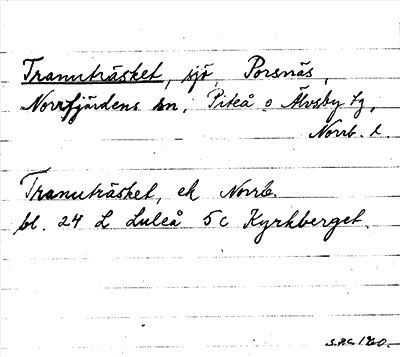 Tranuträsket, sjö, Porsnäs,
Norrfjärdens sn, Piteå o Älvsby tg,
Norrb. l.
Tranuträsket, ek Norrb.
bl. 24 L Luleå 5c Kyrkberget.